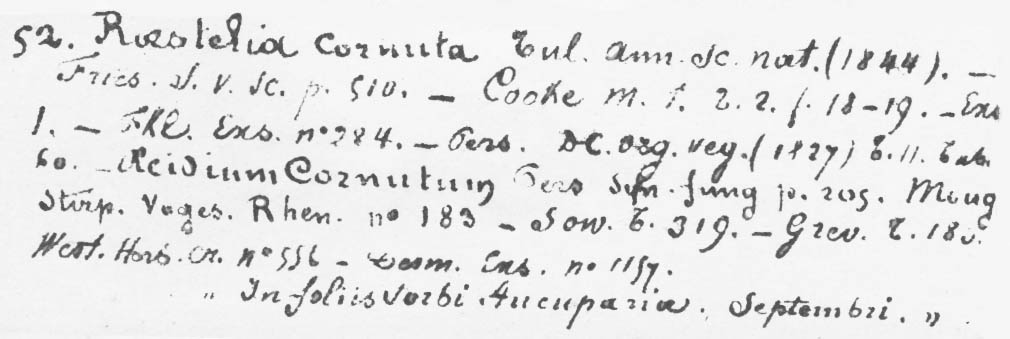 52. Roestelia Cornuta Tul. Ann. Sc. nat. (1844). —
Fries. S. V. Sc. p. 510. — Cooke M. F. T. 2. f. 18-19. — Exs
1. — Fkl. Exs. nº 284. — Pers. DC. org. veg. (1827) T. 11. Tab.
60. — Acidium Cornutum Pers Syn. fung p. 205. Moug
Stirp. Voges. Rhen. nº 183 — Sow. T. 319. — Grev. T. 180.
West. Herb. cr. nº 556 — Desm. Exs. nº 1157.
„ In foliis Sorbi Aucuparia. Septembri. „